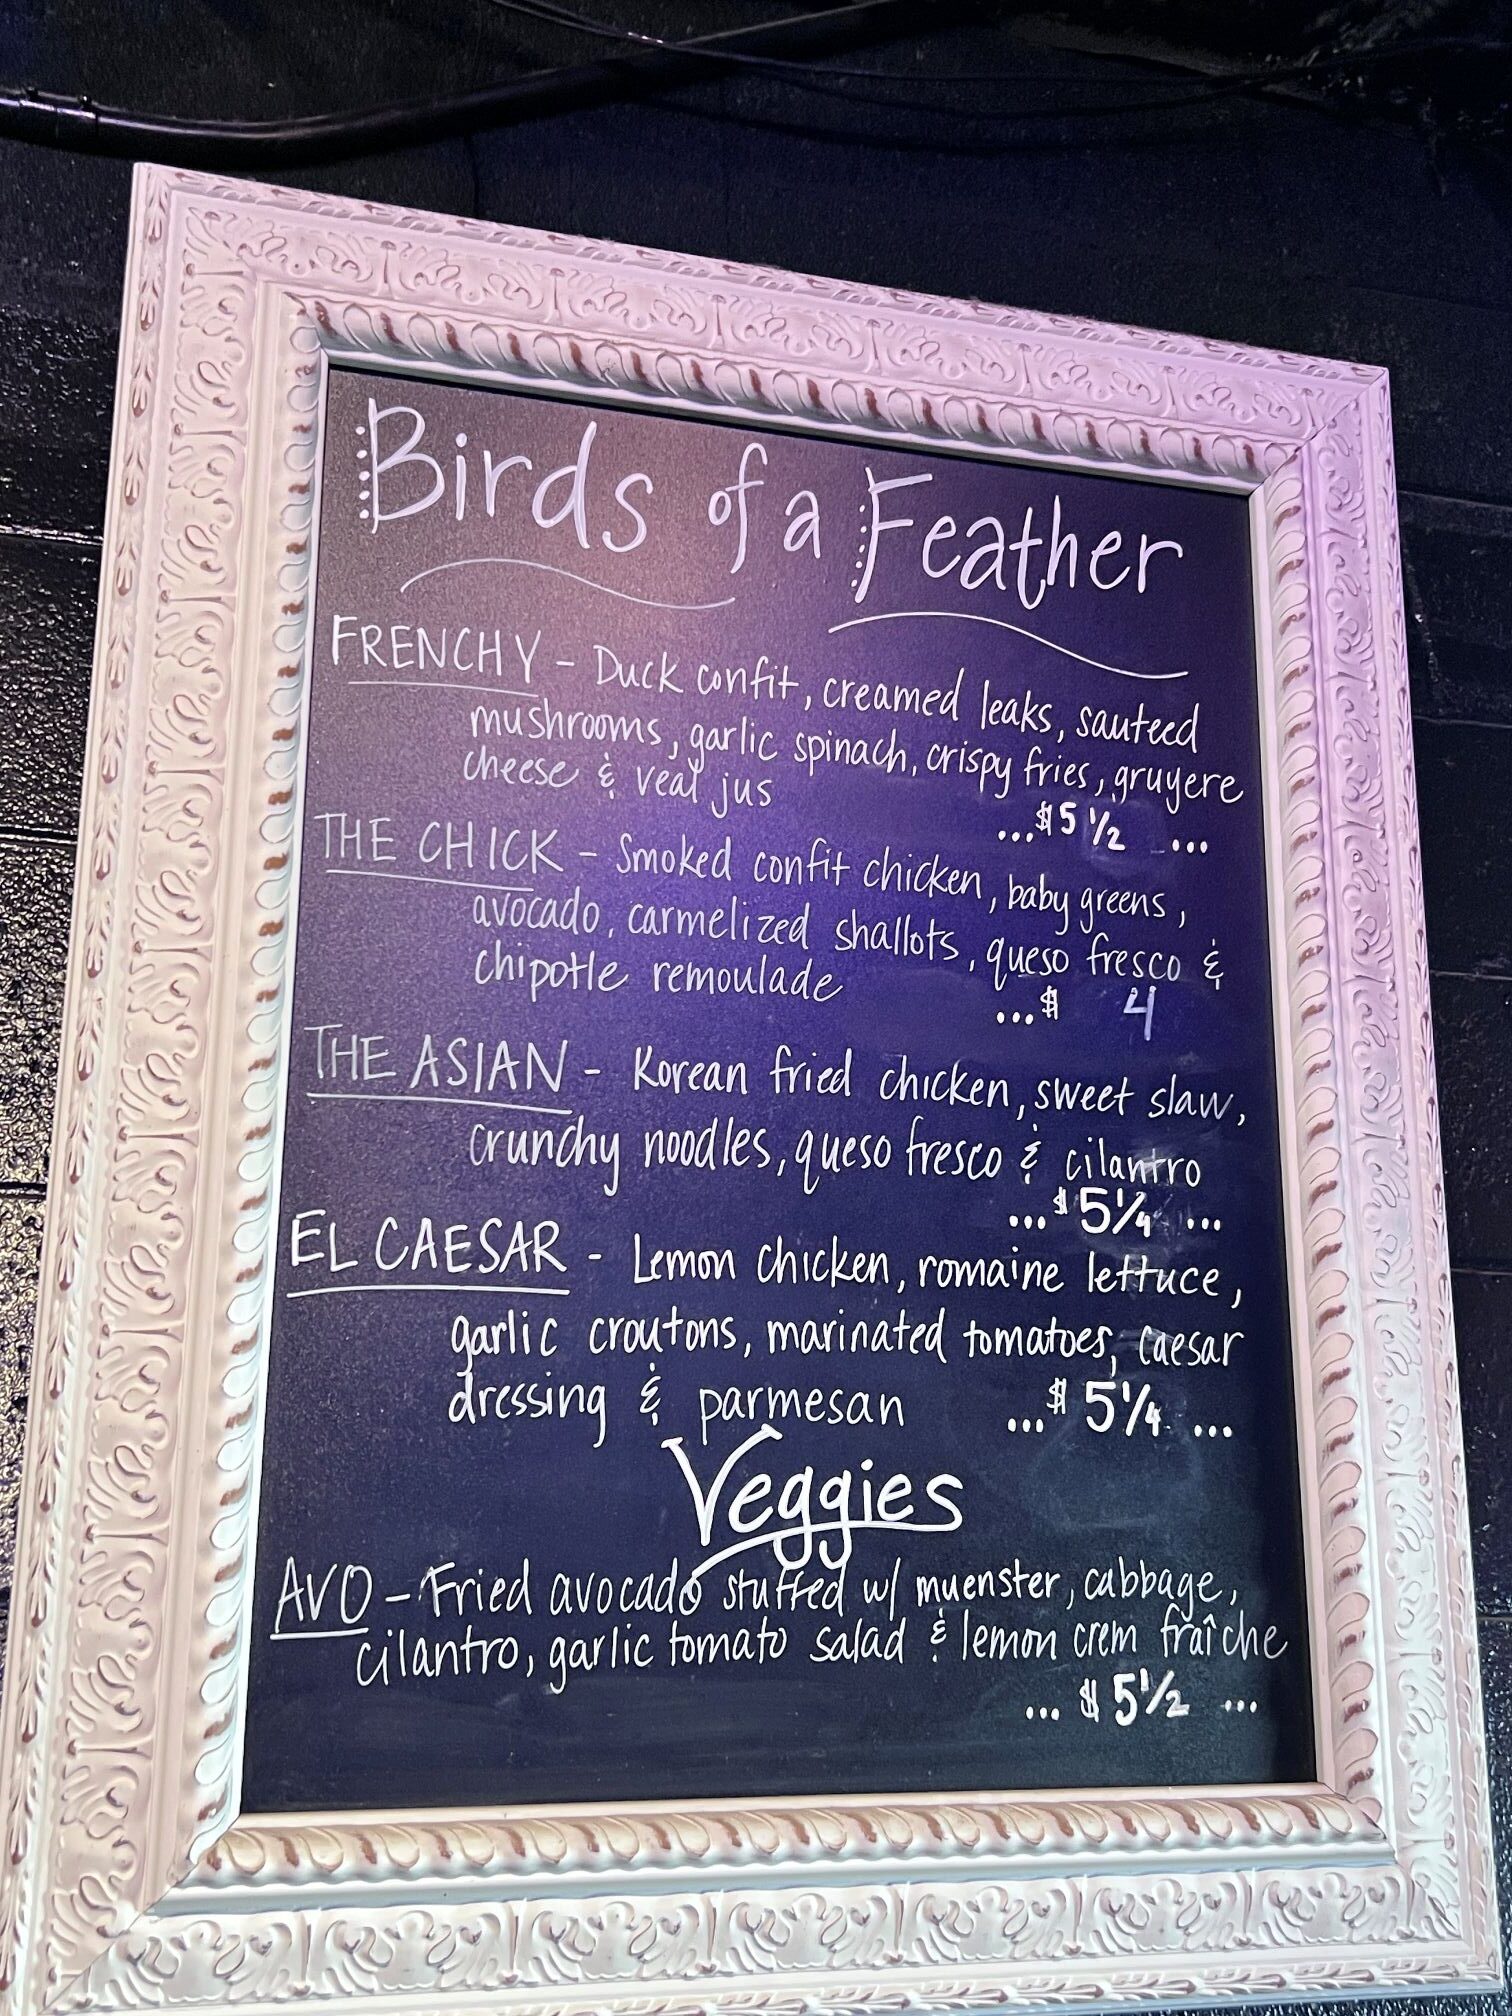 Birds of a Feather
FRENCHY - Duck confit, creamed leaks, sauteed
mushrooms, garlic spinach, crispy fries, gruyere
cheese & veal jus
...$5 1/2 ...
THE CHICK - Smoked confit chicken, baby greens,
avocado, carmelized shallots, queso fresco &
chipotle remoulade
...$ 4
THE ASIAN - Korean fried chicken, sweet slaw,
crunchy noodles, queso fresco & cilantro
...$5 1/4 ...
EL CAESAR - Lemon chicken, romaine lettuce,
garlic croutons, marinated tomatoes, caesar
dressing & parmesan ...$5 1/4 ...
Veggies
AVO - Fried avocado stuffed w/ muenster, cabbage,
cilantro, garlic tomato salad & lemon crem fraîche
... $5 1/2 ...